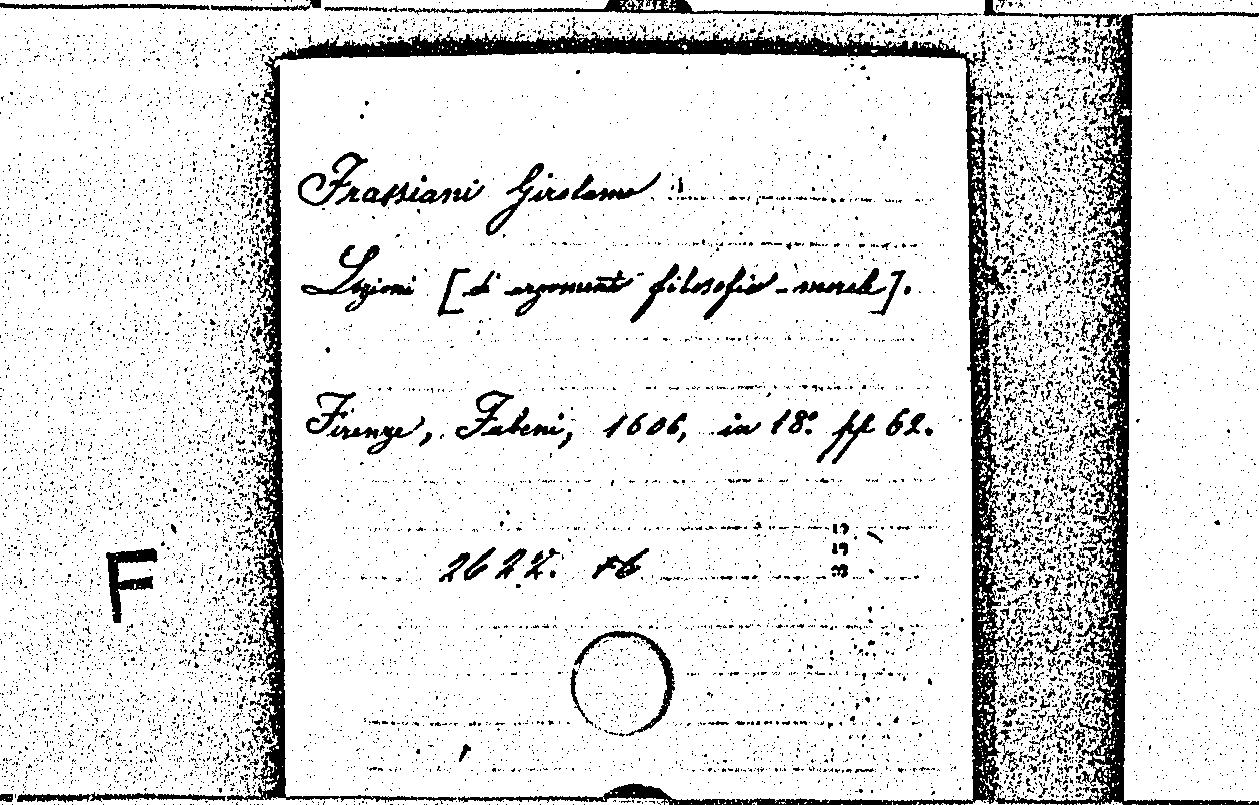 Frassiani Girolamo
Lezioni [di argomenti filosofico-morali].
Firenze, Fabeni, 1606, in 18º pp 62.
2622. +6
F